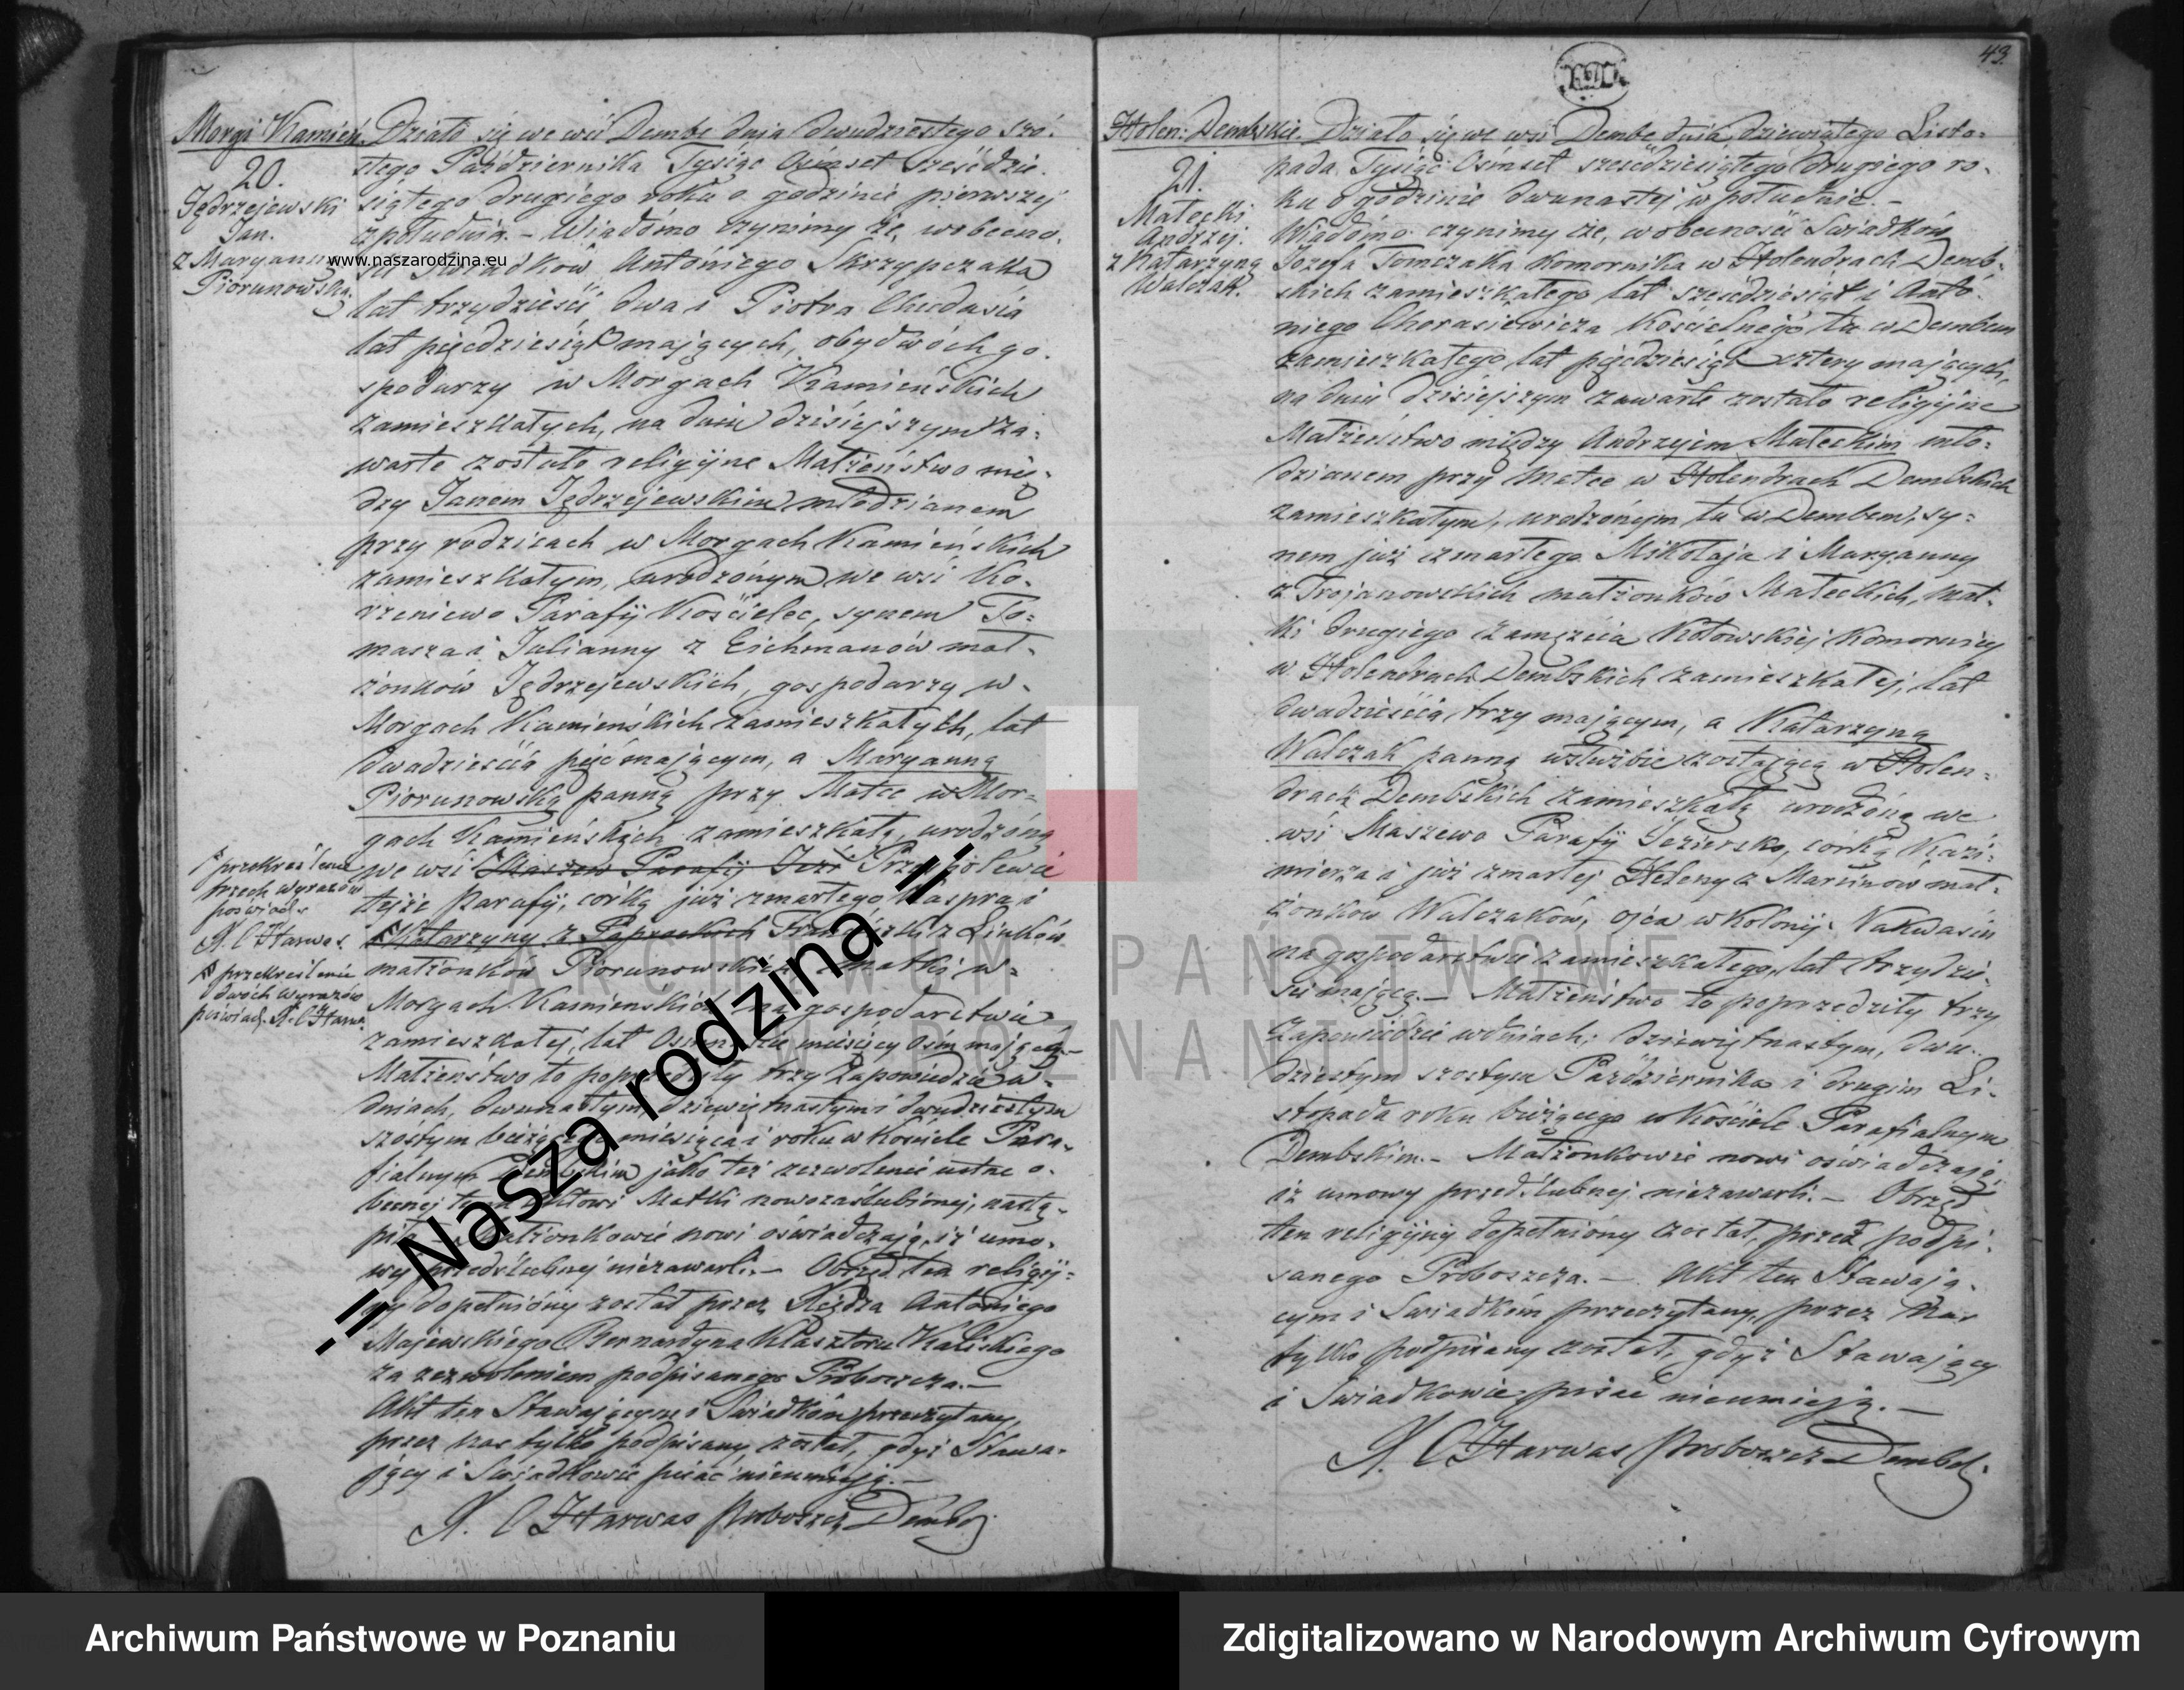 Morgi Kamień.
20.
Jędrzejewski
Jan.
z Maryanną
Piorunowską.
Działo się we wsi Dembe dnia dwudziestego szó-
stego Października Tysiąc Ośmset sześćdzie-
siątego drugiego roku o godzinie pierwszej
z południa. – Wiadomo czynimy że, wobecno-
ści Świadków, Antoniego Skrzypczaka
lat trzydzieści dwa i Piotra Chudasia
lat pięćdziesiąt mających, obydwóch go-
spodarzy w Morgach Kamieńskich
zamieszkałych, na dniu dzisiejszym za-
warte zostało religijne Małżeństwo mię-
dzy Janem Jędrzejewskim młodzianem
przy rodzicach w Morgach Kamieńskich
zamieszkałym, urodzonym we wsi Ko-
rzeniewo Parafij Kościelec, synem To-
masza i Julianny z Eichmanów mał-
żonków Jędrzejewskich, gospodarzy w
Morgach Kamieńskich zamieszkałych, lat
dwadzieścia pięć mającym, a Maryanną
Piorunowską panną przy Matce w Mor-
gach Kamieńskich zamieszkałą, urodzoną
we wsi Maszew Parafij Jezi
tejże Parafij, córką już zmarłego Kaspra i
Katarzyny z Paprockich Franciszki z Linków
małżonków Piorunowskich, Matki w
Morgach Kamieńskich na gospodarstwie
zamieszkałej, lat miesięcy ośm mającą. –
Małżeństwo to poprzedziły trzy Zapowiedzie w
dniach, dwunastym, dziewiętnastym i dwudziestym
szóstym bieżącego miesiąca i roku w Kościele Para-
fialnym Dembskim jako też zezwolenie ustne o-
becnej temu Aktowi Matki nowozaślubionej, nastą-
piło – Małżonkowie nowi oświadczają, iż umo-
wy przedślubnej niezawarli. – Obrzęd ten religij-
ny dopełniony został przez Księdza Antoniego
Majewskiego Bernardyna Klasztoru Kaliskiego
za zezwoleniem podpisanego Proboszcza. –
Akt ten Stawającym i Świadkom przeczytany,
przez nas tylko podpisany został, gdyż Stawa-
jący i Świadkowie pisać nieumieją. –
X. C Harwas Proboszcz Dembs.
przekreślenie
trzech wyrazów
poświadc.
X. C Harwas.
przekreślenie
dwóch wyrazów
poświad. X. C Harwas
www.naszarodzina.eu
-= Nasza rodzina =-
43.
Holen: Dembskie.
21.
Małecki
Andrzej.
z Katarzyną
Walczak.
Działo się we wsi Dembe dnia dziewiątego Listo-
pada Tysiąc Ośmset sześćdziesiątego drugiego ro-
ku o godzinie dwunastej w południe. –
Wiadomo czynimy że, wobecności Świadków
Józefa Tomczaka Komornika w Holendrach Demb-
skich zamieszkałego lat sześćdziesiąt i Anto-
niego Chorasiewicza Kościelnego tu w Dembem
zamieszkałego lat pięćdziesiąt cztery mających,
na dniu dzisiejszym zawarte zostało religijne
Małżeństwo między Andrzejem Małeckim mło-
dzianem przy Matce w Holendrach Dembskich
zamieszkałym, urodzonym tu w Dembem, sy-
nem już zmarłego Mikołaja i Maryanny
z Trojanowskich małżonków Małeckich, Mat-
ki drugiego zamęźcia Kotowskiej Komornicy
w Holendrach Dembskich zamieszkałej, lat
dwadzieścia trzy mającym, a Katarzyną
Walczak panną w służbie zostającą w Holen-
drach Dembskich zamieszkałą urodzoną we
wsi Maszewo Parafij Jeziersko, córką Kazi-
mierza i już zmarłej Heleny z Marcinów mał-
żonków Walczaków, ojca w Kolonij Nakwasin
na gospodarstwie zamieszkałego, lat trzydzie-
ści mającą. – Małżeństwo to poprzedziły trzy
Zapowiedzie w dniach: dziewiętnastym, dwu-
dziestym szóstym Października i drugim Li-
stopada roku bieżącego w Kościele Parafialnym
Dembskim. – Małżonkowie nowi oświadczają,
iż umowy przedślubnej niezawarli. – Obrzęd
ten religijny dopełniony został, przez podpi-
sanego Proboszcza. – Akt ten Stawają-
cym i Świadkom przeczytany, przez Nas
tylko podpisany został, gdyż Stawający
i Świadkowie pisać nieumieją. –
X. C Harwas Proboszcz Dembs.
ARCHIWUM PAŃSTWOWE
W POZNANIU
Archiwum Państwowe w Poznaniu
Zdigitalizowano w Narodowym Archiwum Cyfrowym